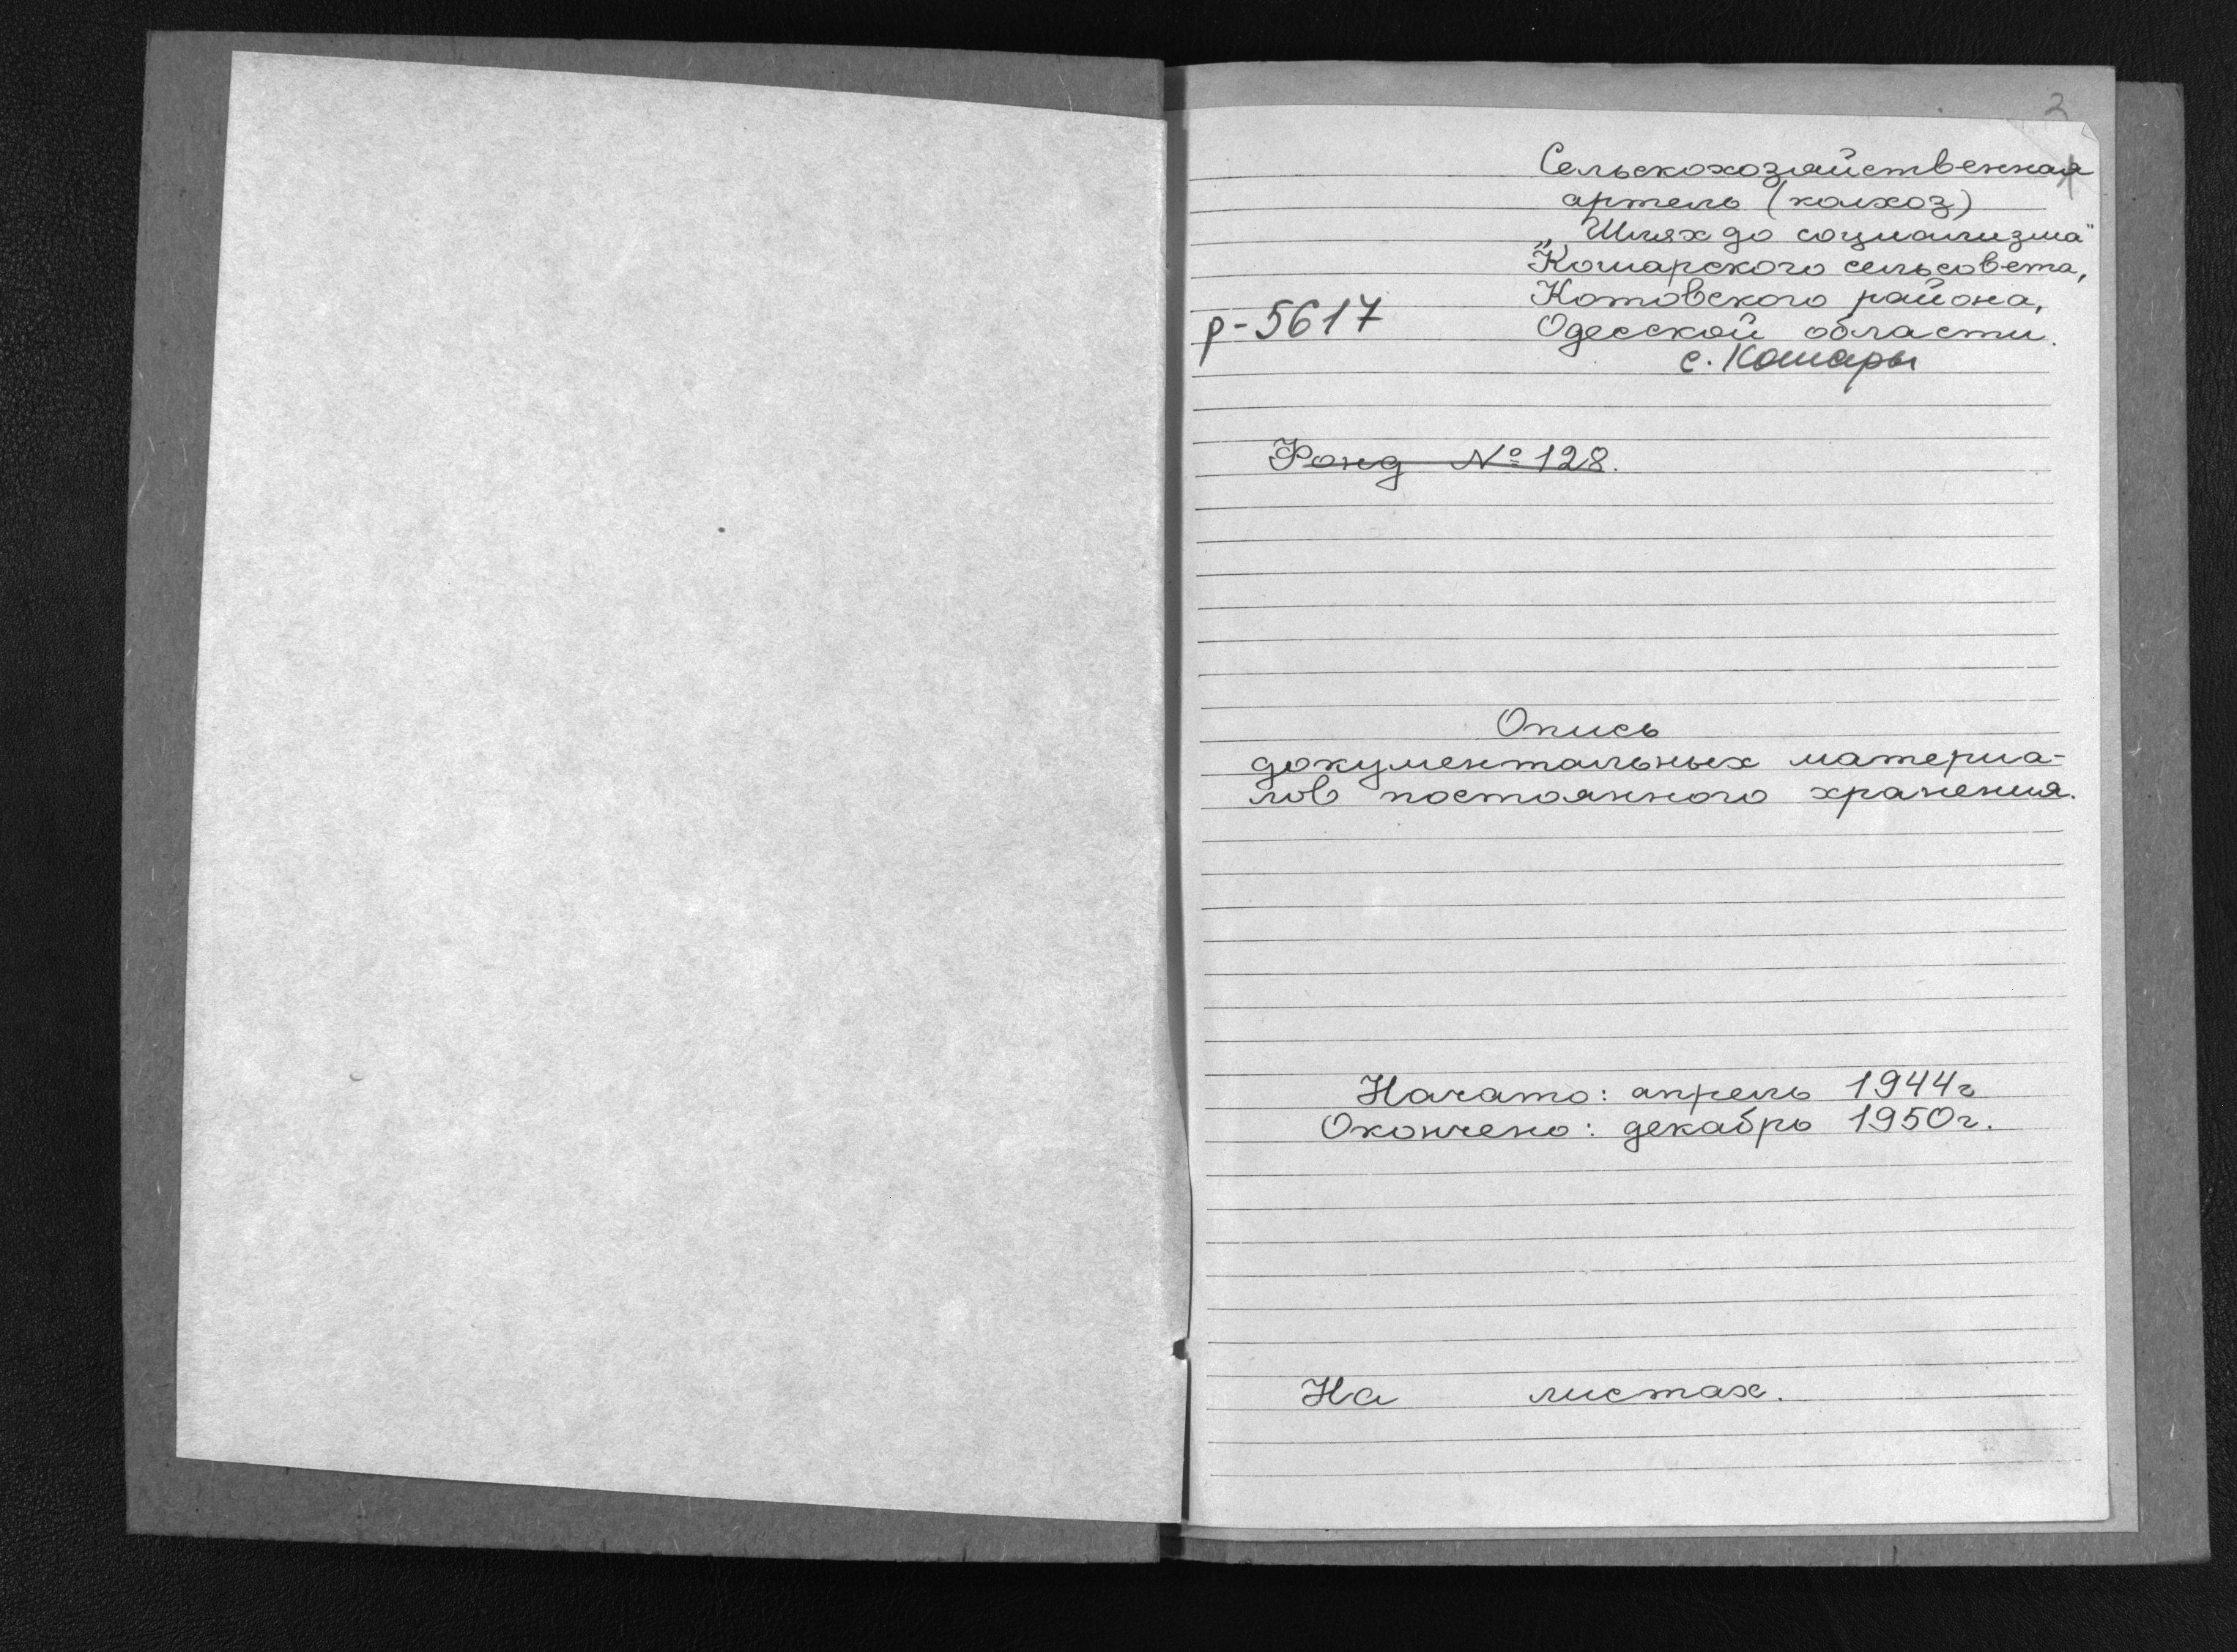 2
Сельскохозяйственная
артель (колхоз)
„Шлях до социализма"
Кошарского сельсовета,
Котовского района,
р-5617
Одесской области.
с. Кошары
Фонд № 128.
Опись
документальных материа-
лов постоянного хранения.
Начато: апрель 1944г
Окончено: декабрь 1950г.
На листах.